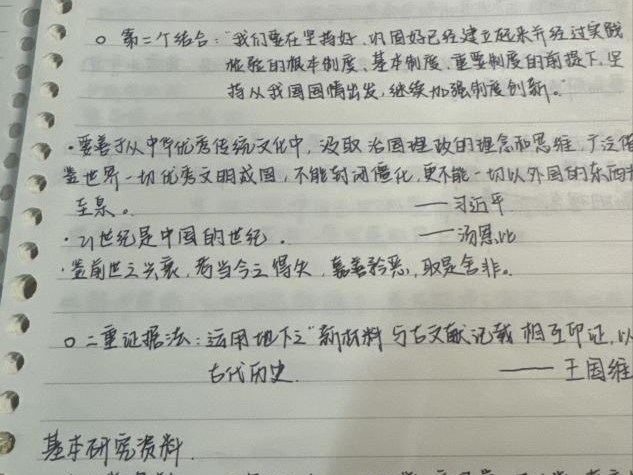 第二个结合:"我们要在坚持好、巩固好已经建立起来并经过实践
检验的根本制度、基本制度、重要制度的前提下,坚
持从我国国情出发,继续加强制度创新。"
·要善于从中华优秀传统文化中,汲取治国理政的理念和思维,广泛借
鉴世界一切优秀文明成国,不能封闭僵化,更不能一切以外国的东西
至臬。 ——习近平
·21世纪是中国的世纪。 ——汤恩比
·鉴前世之兴衰,考当今之得失,嘉善矜恶,取是舍非。
二重证据法:运用地下之"新材料与古文献记载相互印证,以
古代历史. ——王国维
基本研究资料.